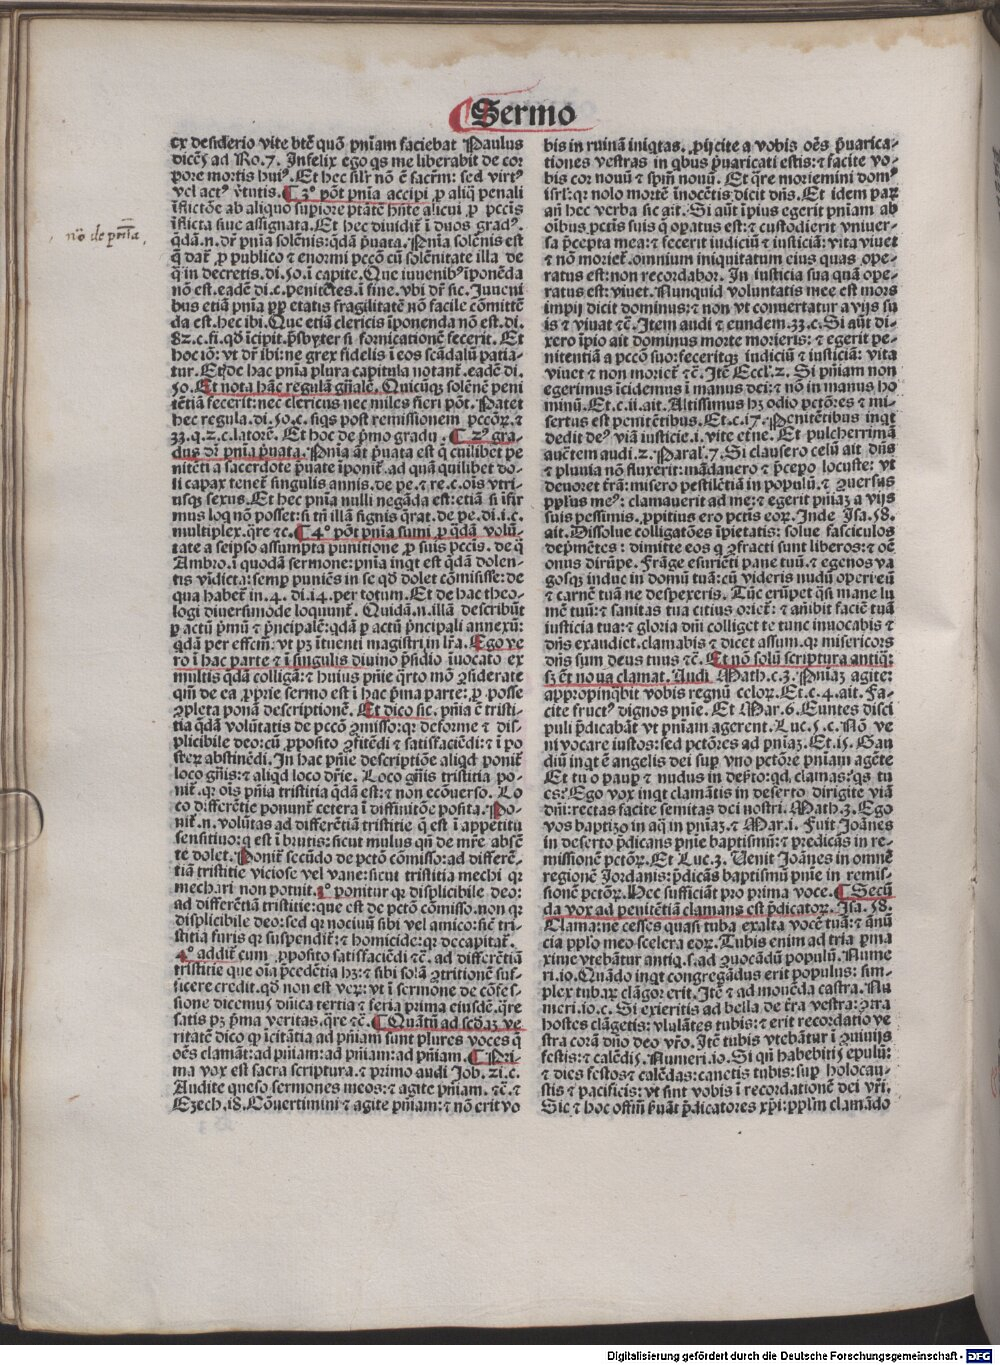 Sermo
ex desiderio vite btē quā pniam faciebat Paulus
dicēs ad Ro.7. Infelix ego qs me liberabit de cor
pore mortis huiꝰ. Et hec silr nō ē sacrm: sed virtꝰ
vel actꝰ v̄tutis. ¶ 3º pōt pnia accipi ꝓ aliq̄ penali
īflictōe ab aliquo supiore ptātē hn̄te alicui ꝓ pctis
īflicta siue assignata. Et hec diuidit̄ ī duos gradꝰ.
nō de pnīa
q̄dā.n. dr̄ pnia solēnis: q̄dā p̄uata. Pnia solēnis est
q̄ dat̄ ꝓ publico ⁊ enormi pctō cū solēnitate illa de
q̄ in decretis.di.50.ī capite. Que iuuenibꝰ īponēda
nō est. eadē di.c. penitētes. ī fine. vbi dr̄ sic. Iuueni
bus etiā pnia ꝓp etatis fragilitatē nō facile cōmittē
da est. hec ibi. Que etiā clericis īponenda nō est. di.
82.c.fi. qd̄ īcipit. p̄sbyter si fornicationē fecerit. Et
hoc iō: vt dr̄ ibi: ne grex fidelis ī eos scādalū patia-
tur. Et de hac pnia plura capitula notant̄. eadē di.
50. Et nota hāc regulā gn̄alē. Quicūqꝫ solēnē peni
tētiā fecerit: nec clericus nec miles fieri pōt. Patet
hec regula.di.50.c. siqs post remissionem pctōꝝ. ⁊
33.q.2.c. latorē. Et hoc de p̄mo gradu. ¶ 2ꝰ gra-
dus dr̄ pnia p̄uata. Pnia āt p̄uata est q̄ cuilibet pe
nitēti a sacerdote p̄uate īponit̄. ad quā quilibet do-
li capax tenet̄ singulis annis. de pe. ⁊ re.c. oīs vtri-
usqꝫ sexus. Et hec pnia nulli negāda est: etiā si īfir
mus loq nō posset: si tn̄ illā signis q̄rat. de pe.di.i.c.
multiplex. q̄re ⁊c. ¶ 4º pōt pnia sumi ꝓ q̄dā volū-
tate a seipso assumpta punitione ꝓ suis pctis. de q̄
Ambro. ī quodā sermone: pnia inqt est q̄dā dolen-
tis vīdicta: semp puniēs in se qd̄ dolet cōmisisse: de
qua habet̄ in.4. di.14. per totum. Et de hac theo-
logi diuersimode loquunt̄. Quidā.n. illā describūt
ꝓ actū p̄mū ⁊ p̄ncipalē: qdā ꝓ actū p̄ncipali annexū:
qdām per effcm̄: vt pꝫ ītuenti magistri in lr̄a. Ego ve
ro ī hac parte ⁊ ī singulis diuino p̄sidio īuocato ex
multis qdā colligā: ⁊ huius pnie q̄rto mō ꝯsiderate
qm̄ de ea ꝓprie sermo est ī hac p̄ma parte: ꝓ posse
ꝯpleta ponā descriptionē. Et dico sic. pnia ē tristi-
tia q̄dā volūtatis de pctō ꝯmisso: qꝛ deforme ⁊ dis-
plicibile deo: cū ꝓposito ꝯfitēdi ⁊ satisfaciēdi: ⁊ ī po
steꝝ abstinēdi. In hac pnie descriptiōe aliqd ponit̄
loco gn̄is: ⁊ aliqd loco dr̄ie. Loco gn̄is tristitia po-
nit̄. qꝛ oīs pnia tristitia q̄dā est: ⁊ non ecōuerso. Lo
co differētie ponunt̄ cetera ī diffinitōe posita. Po-
nit̄.n. volūtas ad differētiā tristitie q̄ est ī appetitu
sensitiuo: q̄ est ī brutis: sicut mulus qn̄ de mr̄e absē
te dolet. Ponit̄ secūdo de pctō cōmisso: ad differē-
tiā tristitie viciose vel vane: sicut tristitia mechi qꝛ
mechari non potuit. 3º ponitur qꝛ displicibile deo:
ad differētiā tristitie: que est de pctō cōmisso. non qꝛ
displicibile deo: sed qꝛ nociuū sibi vel amico: sic̄ tri-
stitia furis qꝛ suspendit̄: ⁊ homicide: qꝛ decapitat̄.
4º addit̄ cum ꝓposito satisfaciēdi ⁊c̄. ad differētiā
tristitie que oīa p̄cedētia hꝫ: ⁊ sibi solā ꝯtritionē suf-
ficere credit. qd̄ non est veꝝ: vt ī sermone de cōfes-
sione dicemus dn̄ica tertia ⁊ feria prima eiusdē. q̄re
satis pꝫ p̄ma veritas. q̄re ⁊c̄. ¶ Quātū ad scd̄aꝫ ve
ritatē dico qꝫ īcitātia ad pniam sunt plures voces q̄
oēs clamāt: ad pniam: ad pniam: ad pniam. ¶ Pri-
ma vox est sacra scriptura. ⁊ primo audi Job. 21.c.
Audite queso sermones meos: ⁊ agite pniam. ⁊c̄. ⁊
Ezech.18. Cōuertimini ⁊ agite pniam: ⁊ nō erit vo
bis in ruinā iniqtas. ꝓijcite a vobis oēs p̄uarica-
tiones vestras in qbus p̄uaricati estis: ⁊ facite vo-
bis cor nouū ⁊ spm̄ nouū. Et q̄re moriemini domꝰ
isrl̄: qꝛ nolo mortē īnocētis dicit dn̄s. Et idem paꝝ
añ hec verba sic ait. Si aūt īpius egerit pniam ab
oībus pctis suis q̄ opatus est: ⁊ custodierit vniuer-
sa p̄cepta mea: ⁊ fecerit iudiciū ⁊ iusticiā: vita viuet
⁊ nō moriet̄. omnium iniquitatum eius quas ope-
ratus est: non recordabor. In iusticia sua quā ope-
ratus est: viuet. Nunquid voluntatis mee est mors
impij dicit dominus: ⁊ non vt conuertatur a vijs su
is ⁊ viuat ⁊c̄. Item audi ⁊ eundem.33.c. Si aūt di-
xero īpio ait dominus morte morieris: ⁊ egerit pe-
nitentiā a pctō suo: feceritqꝫ iudiciū ⁊ iusticiā: vita
viuet ⁊ non moriet̄ ⁊c̄. Itē Eccl̄.2. Si pniam non
egerimus īcidemus ī manus dei: ⁊ nō in manus ho
minū. Et.c.ii.ait. Altissimus hꝫ odio pctōres ⁊ mi-
sertus est penitētibus. Et.c.17. Penitētibus inqt
dedit deꝰ viā iusticie.i. vite et̄ne. Et pulcherrimā
auctem audi.2. Paral.7. Si clausero celū ait dn̄s
⁊ pluuia nō fluxerit: mādauero ⁊ p̄cepo locuste: vt
deuoret tr̄ā: misero pestilētiā in populū. ⁊ ꝯuersus
pplus meꝰ: clamauerit ad me: ⁊ egerit pniaꝫ a vijs
suis pessimis. ꝓpitius ero pctis eoꝝ. Inde Isa.58.
ait. Dissolue colligatōes īpietatis: solue fasciculos
dep̄mētes: dimitte eos q̄ ꝯfracti sunt liberos: ⁊ oē
onus dirūpe. Frāge esuriēti pane tuū. ⁊ egenos va
gosqꝫ induc in domū tuā: cū videris nudū operi eū
⁊ carnē tuā ne despexeris. Tūc erūpet q̄si mane lu
mē tuū: ⁊ sanitas tua citius oriet̄: ⁊ añibit faciē tuā
iusticia tua: ⁊ gloria dn̄i colliget te tunc inuocabis ⁊
dn̄s exaudiet. clamabis ⁊ dicet assum. qꝛ misericors
dn̄s sum deus tuus ⁊c̄. Et nō solū scriptura antiq̄:
sꝫ et̄ noua clamat. Audi Math.c.3. Pniaꝫ agite:
appropinq̄bit vobis regnū celoꝝ. Et.c.4.ait. Fa-
cite fructꝰ dignos pnie. Et Mar.6. Euntes disci
puli p̄dicabāt vt pniam agerent. Luc.5.c. Nō ve
ni vocare iustos: sed pctōres ad pniaꝫ. Et.15. Gau
diū inqt ē angelis dei sup vno pctōre pniam agēte
Et tu o paup ⁊ nudus in dep̄to: qd̄ clamas? qs tu
es? Ego vox inqt clamātis in deserto dirigite viā
dn̄i: rectas facite semitas dei nostri. Math.3. Ego
vos baptizo in aq̄ in pniaꝫ. ⁊ Mar.i. Fuit Joānes
in deserto p̄dicans pnie baptismū: ⁊ predicās in re-
missionē pctōꝝ. Et Luc.3. Uenit Joānes in omnē
regionē Jordanis: p̄dicās baptismū pnie in remis-
sionē pctōꝝ. Hec sufficiāt pro prima voce. ¶ Secū
da vox ad penitētiā clamans est p̄dicatoꝝ. Isa.58.
Clama: ne cesses quasi tuba exalta vocē tuā: ⁊ añū
cia pplo meo scelera eoꝝ. Tubis enim ad tria ꝓma
xime vtebātur antiq.s. ad ꝯuocādū populū. Nume
ri.10. Quādo inqt congregādus erit populus: sim-
plex tubaꝝ clāgor erit. Itē ⁊ ad mouēda castra. Nu
meri.10.c. Si exieritis ad bella de tr̄a vestra: ꝯtra
hostes clāgetis: vlulātes tubis: ⁊ erit recordatio ve
stra corā dn̄o deo vr̄o. Itē tubis vtebātur ī ꝯuiuijs
festis: ⁊ calēdis. Numeri.10. Si qn̄ habebitis epulū:
⁊ dies festos ⁊ calēdas: canetis tubis: sup holocau-
stis ⁊ pacificis: vt sint vobis ī recordationē dei vr̄i.
Sic ⁊ hoc offm̄ p̄uāt p̄dicatores xp̄i: pplm̄ clamādo
Digitalisierung gefördert durch die Deutsche Forschungsgemeinschaft - DFG